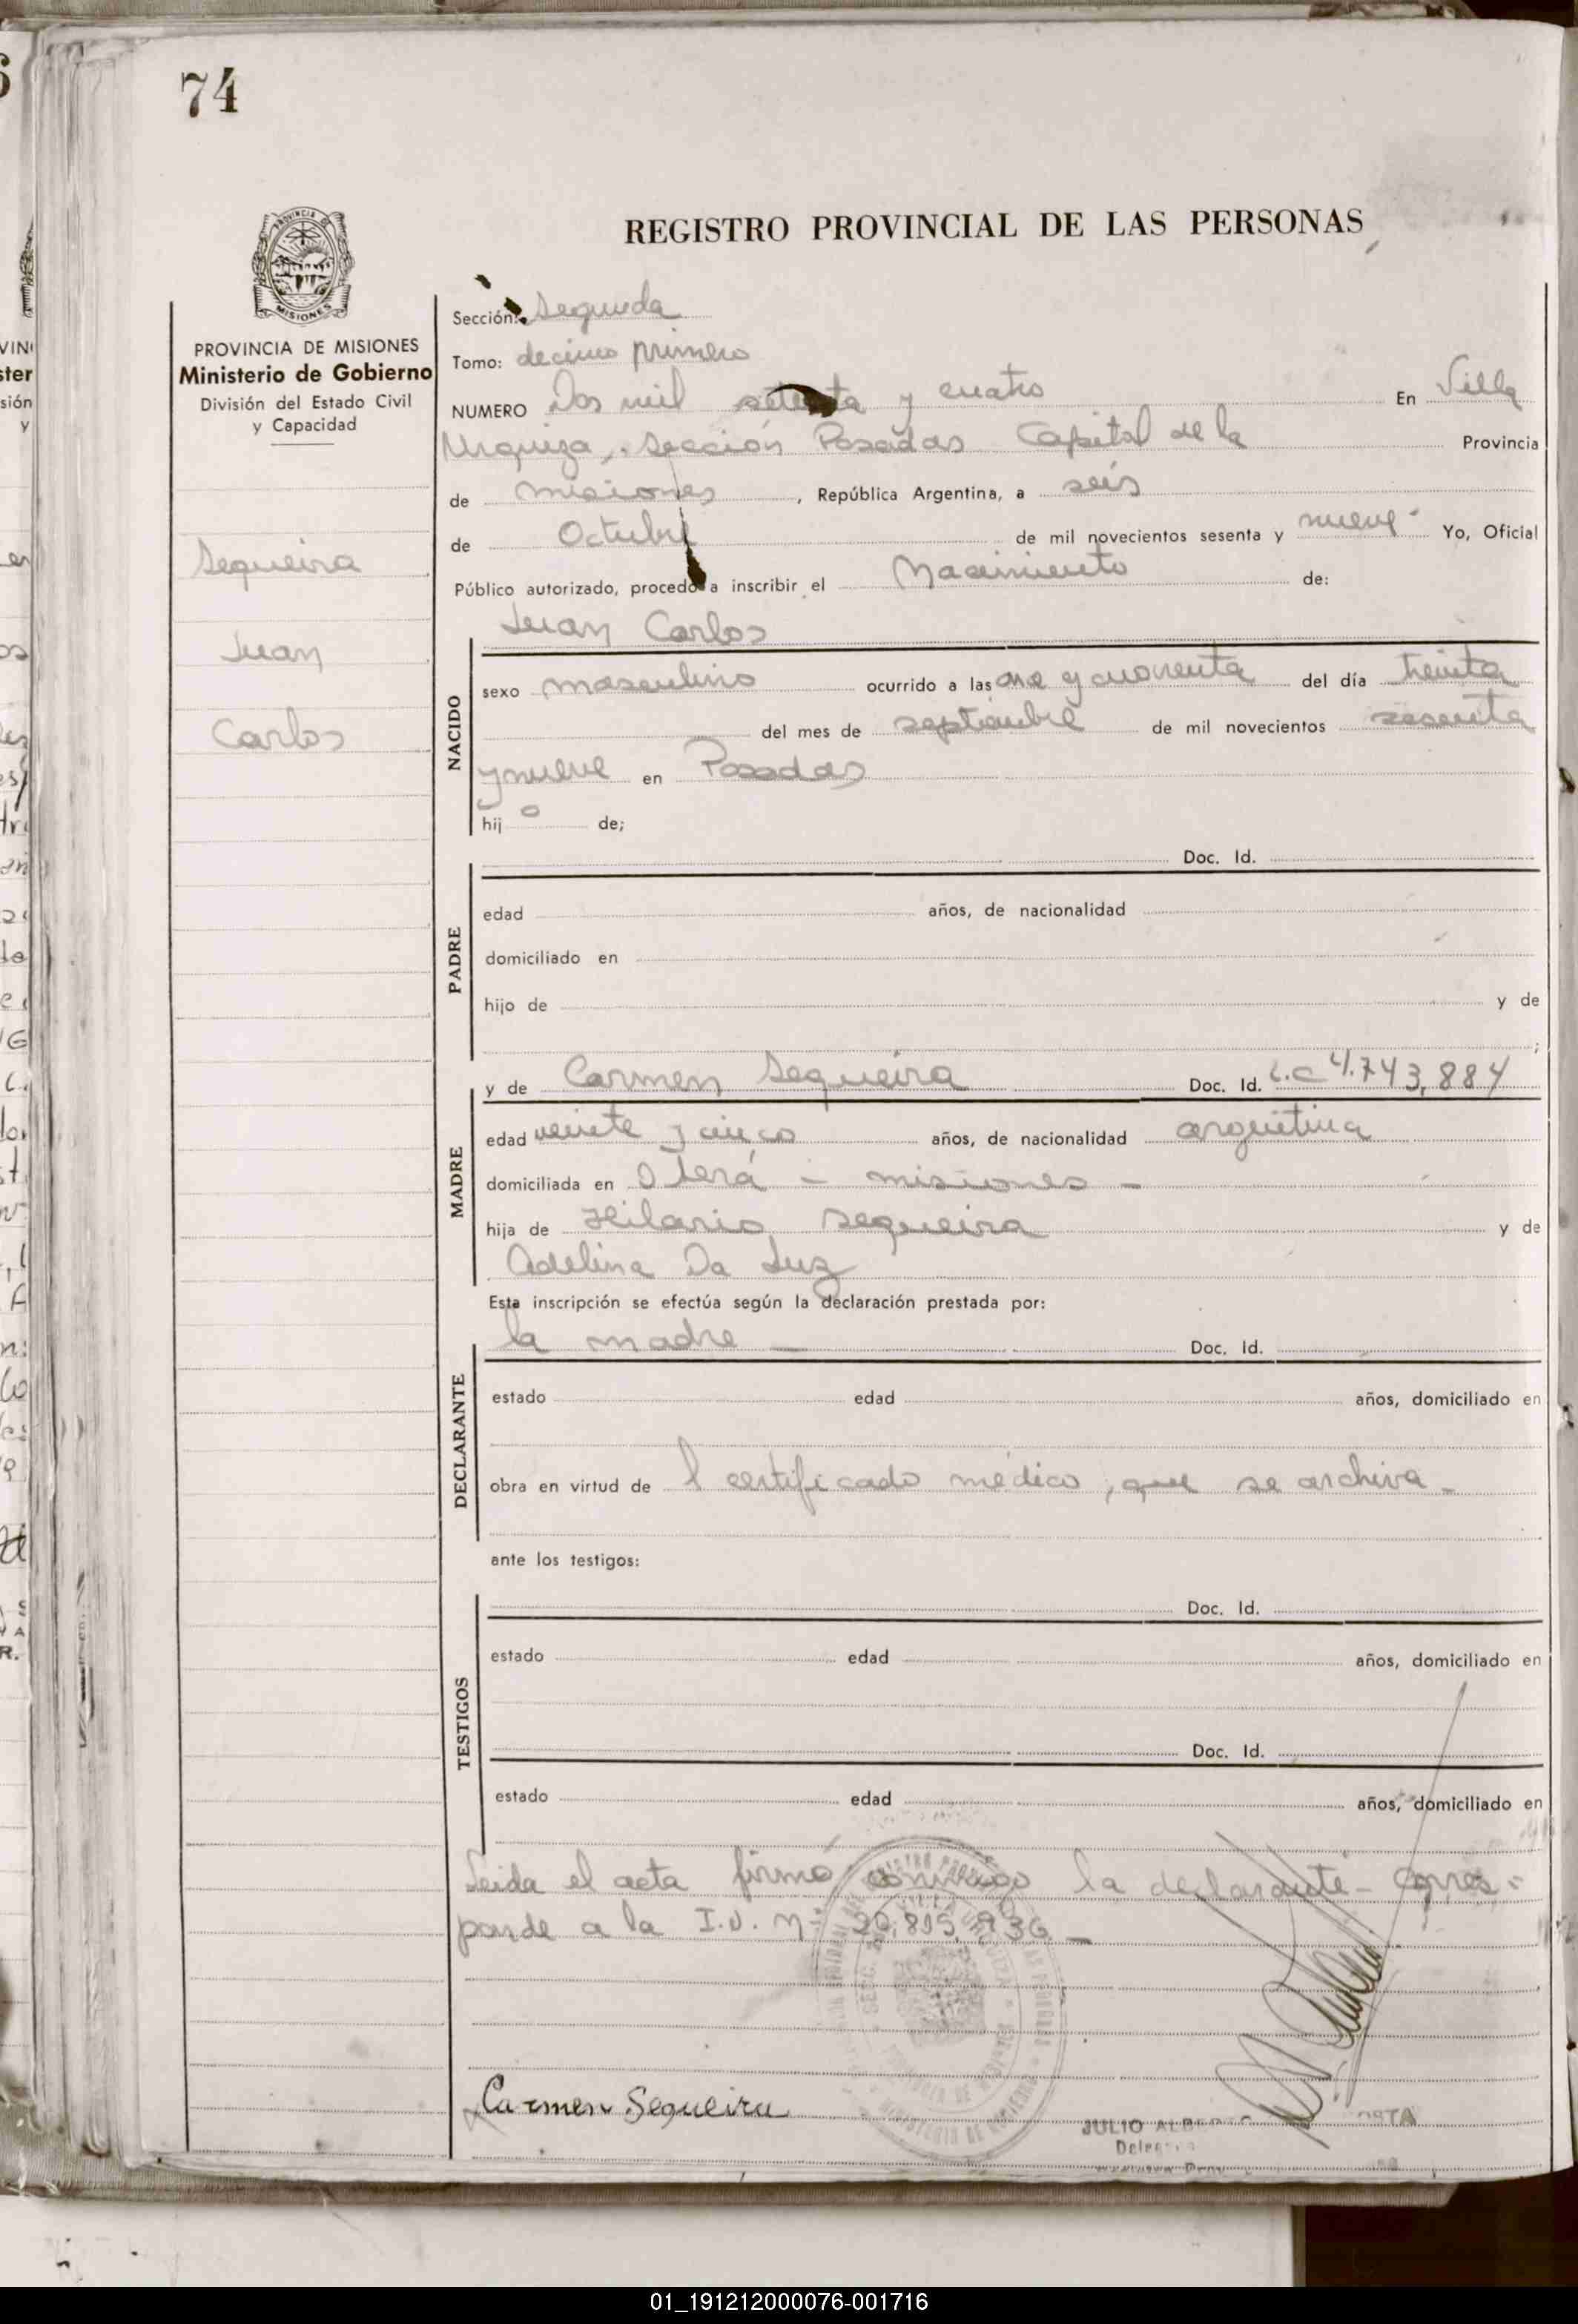 74
REGISTRO PROVINCIAL DE LAS PERSONAS
MISIONES
PROVINCIA DE MISIONES
Ministerio de Gobierno
División del Estado Civil
y Capacidad
Sequeira
Juan
Carlos
Sección: Segunda
Tomo: decimo primero
NUMERO Dos mil setenta y cuatro En Villa
Urquiza, Sección Posadas Capital de la Provincia
de misiones, República Argentina, a seis
de Octubre de mil novecientos sesenta y nueve Yo, Oficial
Público autorizado, procedo a inscribir el Nacimiento de:
Juan Carlos
NACIDO
sexo masculino ocurrido a las una y cuarenta del día treinta
del mes de septiembre de mil novecientos sesenta
y nueve en Posadas
hij o de;
PADRE
Doc. Id.
edad años, de nacionalidad
domiciliado en
hijo de y de
;
MADRE
y de Carmen Sequeira Doc. Id. L.C 4.743,884
edad veinte y cinco años, de nacionalidad argentina
domiciliada en Oberá - misiones -
hija de Hilario Sequeira y de
Adelina Da Luz
Esta inscripción se efectúa según la declaración prestada por:
DECLARANTE
la madre Doc. Id.
estado edad años, domiciliado en
obra en virtud de l certificado médico, que se archiva -
ante los testigos:
TESTIGOS
Doc. Id.
estado edad años, domiciliado en
Doc. Id.
estado edad años, domiciliado en
Leida el acta firma conmigo la declarante - Corres-
ponde a la I.D. Nº 20,815,936 -
Carmen Sequeira
JULIO
01_191212000076-001716